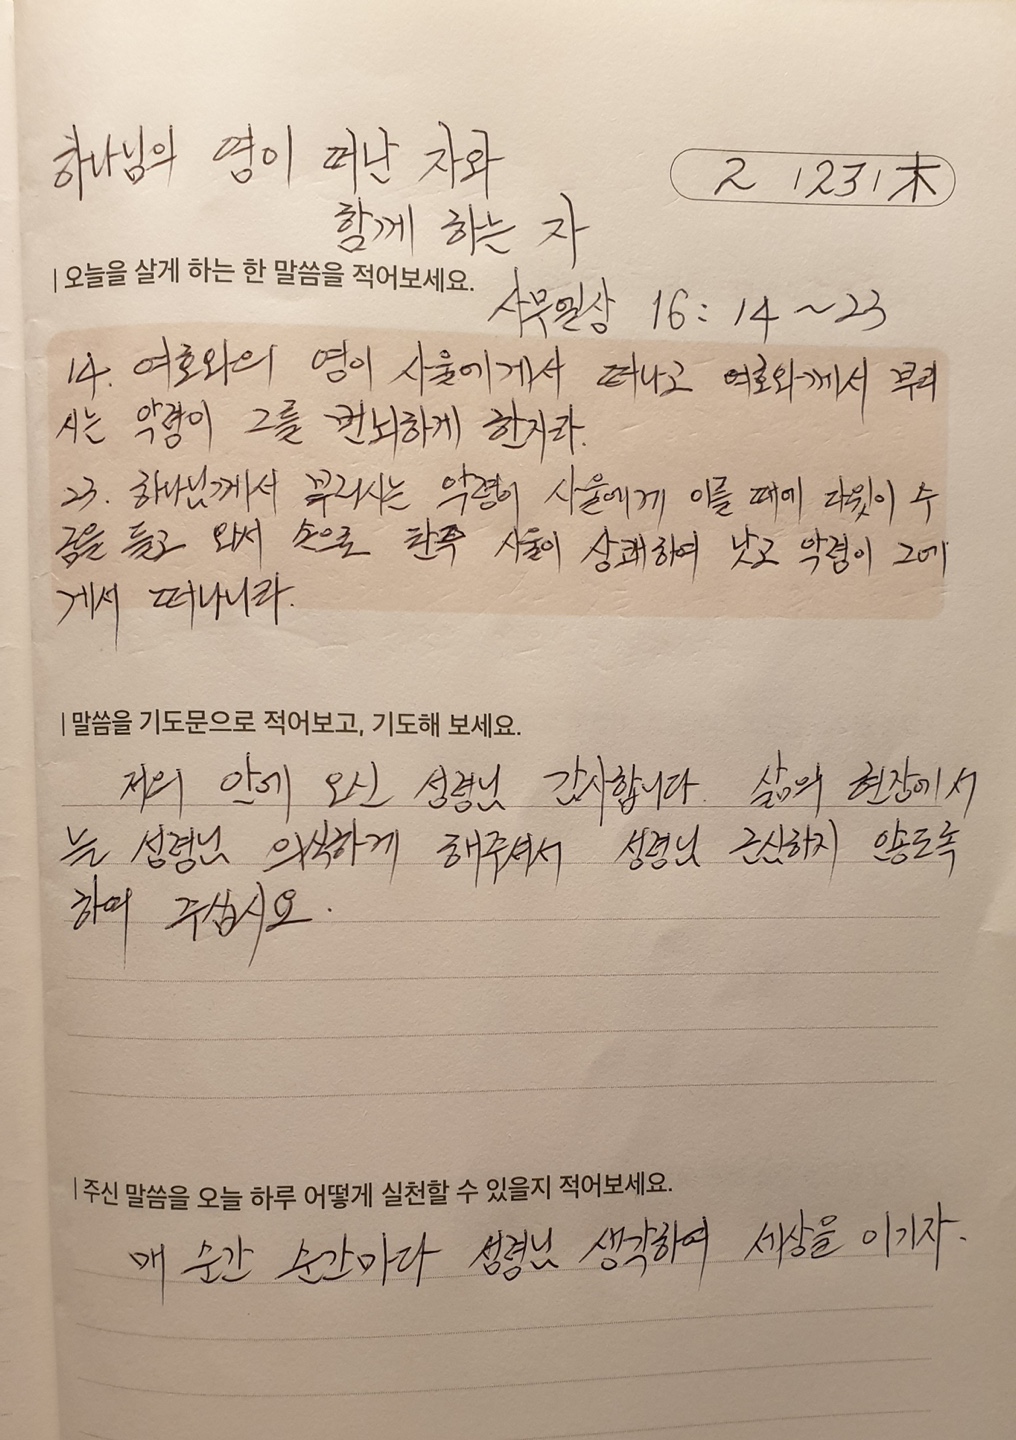 하나님의 영이 떠난 자와
2 1231 木
함께 하는 자
오늘을 살게 하는 한 말씀을 적어보세요.
사무엘상 16:14~23
14. 여호와의 영이 사울에게서 떠나고 여호와께서 부리
시는 악령이 그를 번뇌하게 한지라.
23. 하나님께서 부리시는 악령이 사울에게 이를 때에 다윗이 수
금을 들고 와서 손으로 탄즉 사울이 상쾌하여 낫고 악령이 그에
게서 떠나니라.
말씀을 기도문으로 적어보고, 기도해 보세요.
저의 안에 오신 성령님 감사합니다. 삶의 현장에서
늘 성령님 의식하게 해주셔서 성령님 근심하지 않도록
하여 주십시오.
주신 말씀을 오늘 하루 어떻게 실천할 수 있을지 적어보세요.
매 순간 순간마다 성령님 생각하여 세상을 이기자.